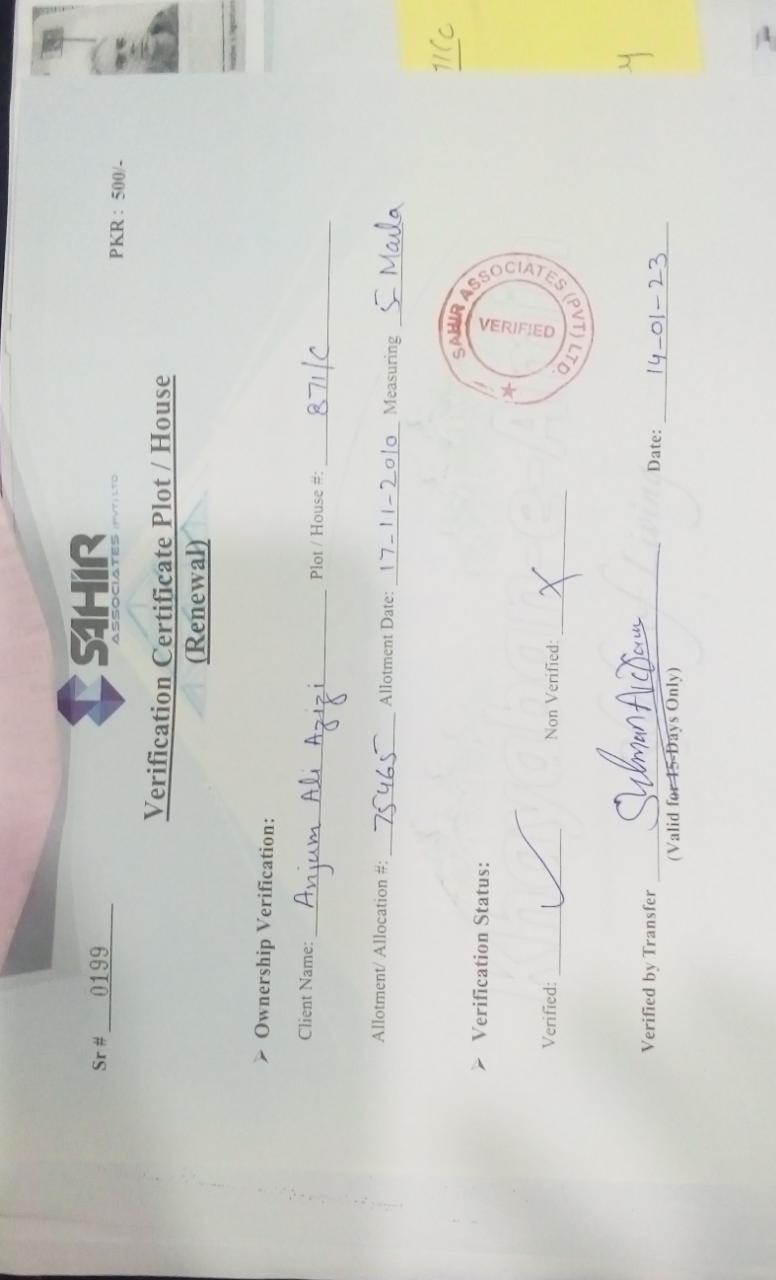 SAHIR
ASSOCIATES (PVT) LTD
Sr # 0199 PKR: 500/-
Verification Certificate Plot / House
(Renewal)
➤ Ownership Verification:
Client Name: Anjum Ali Azizi Plot / House #: 871/C
Allotment/ Allocation #: 75465 Allotment Date: 17-11-2010 Measuring 5 Marla
➤ Verification Status:
Verified: ✓ Non Verified: X
SAHIR ASSOCIATES (PVT) LTD.
VERIFIED
Verified by Transfer Date: 14-01-23
(Valid for 15 Days Only)